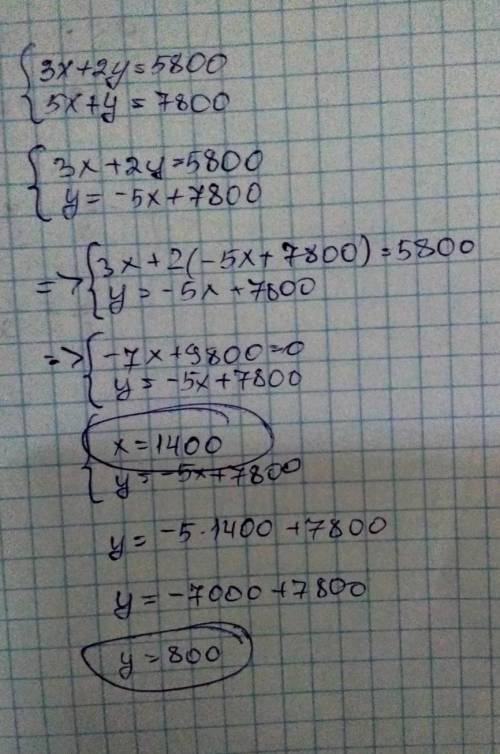 3x+2y=5800
5x+y=7800
3x+2y=5800
y=-5x+7800
=> 3x+2(-5x+7800)=5800
y=-5x+7800
=> -7x+9800=0
y=-5x+7800
x=1400
y=-5x+7800
y=-5·1400+7800
y=-7000+7800
y=800